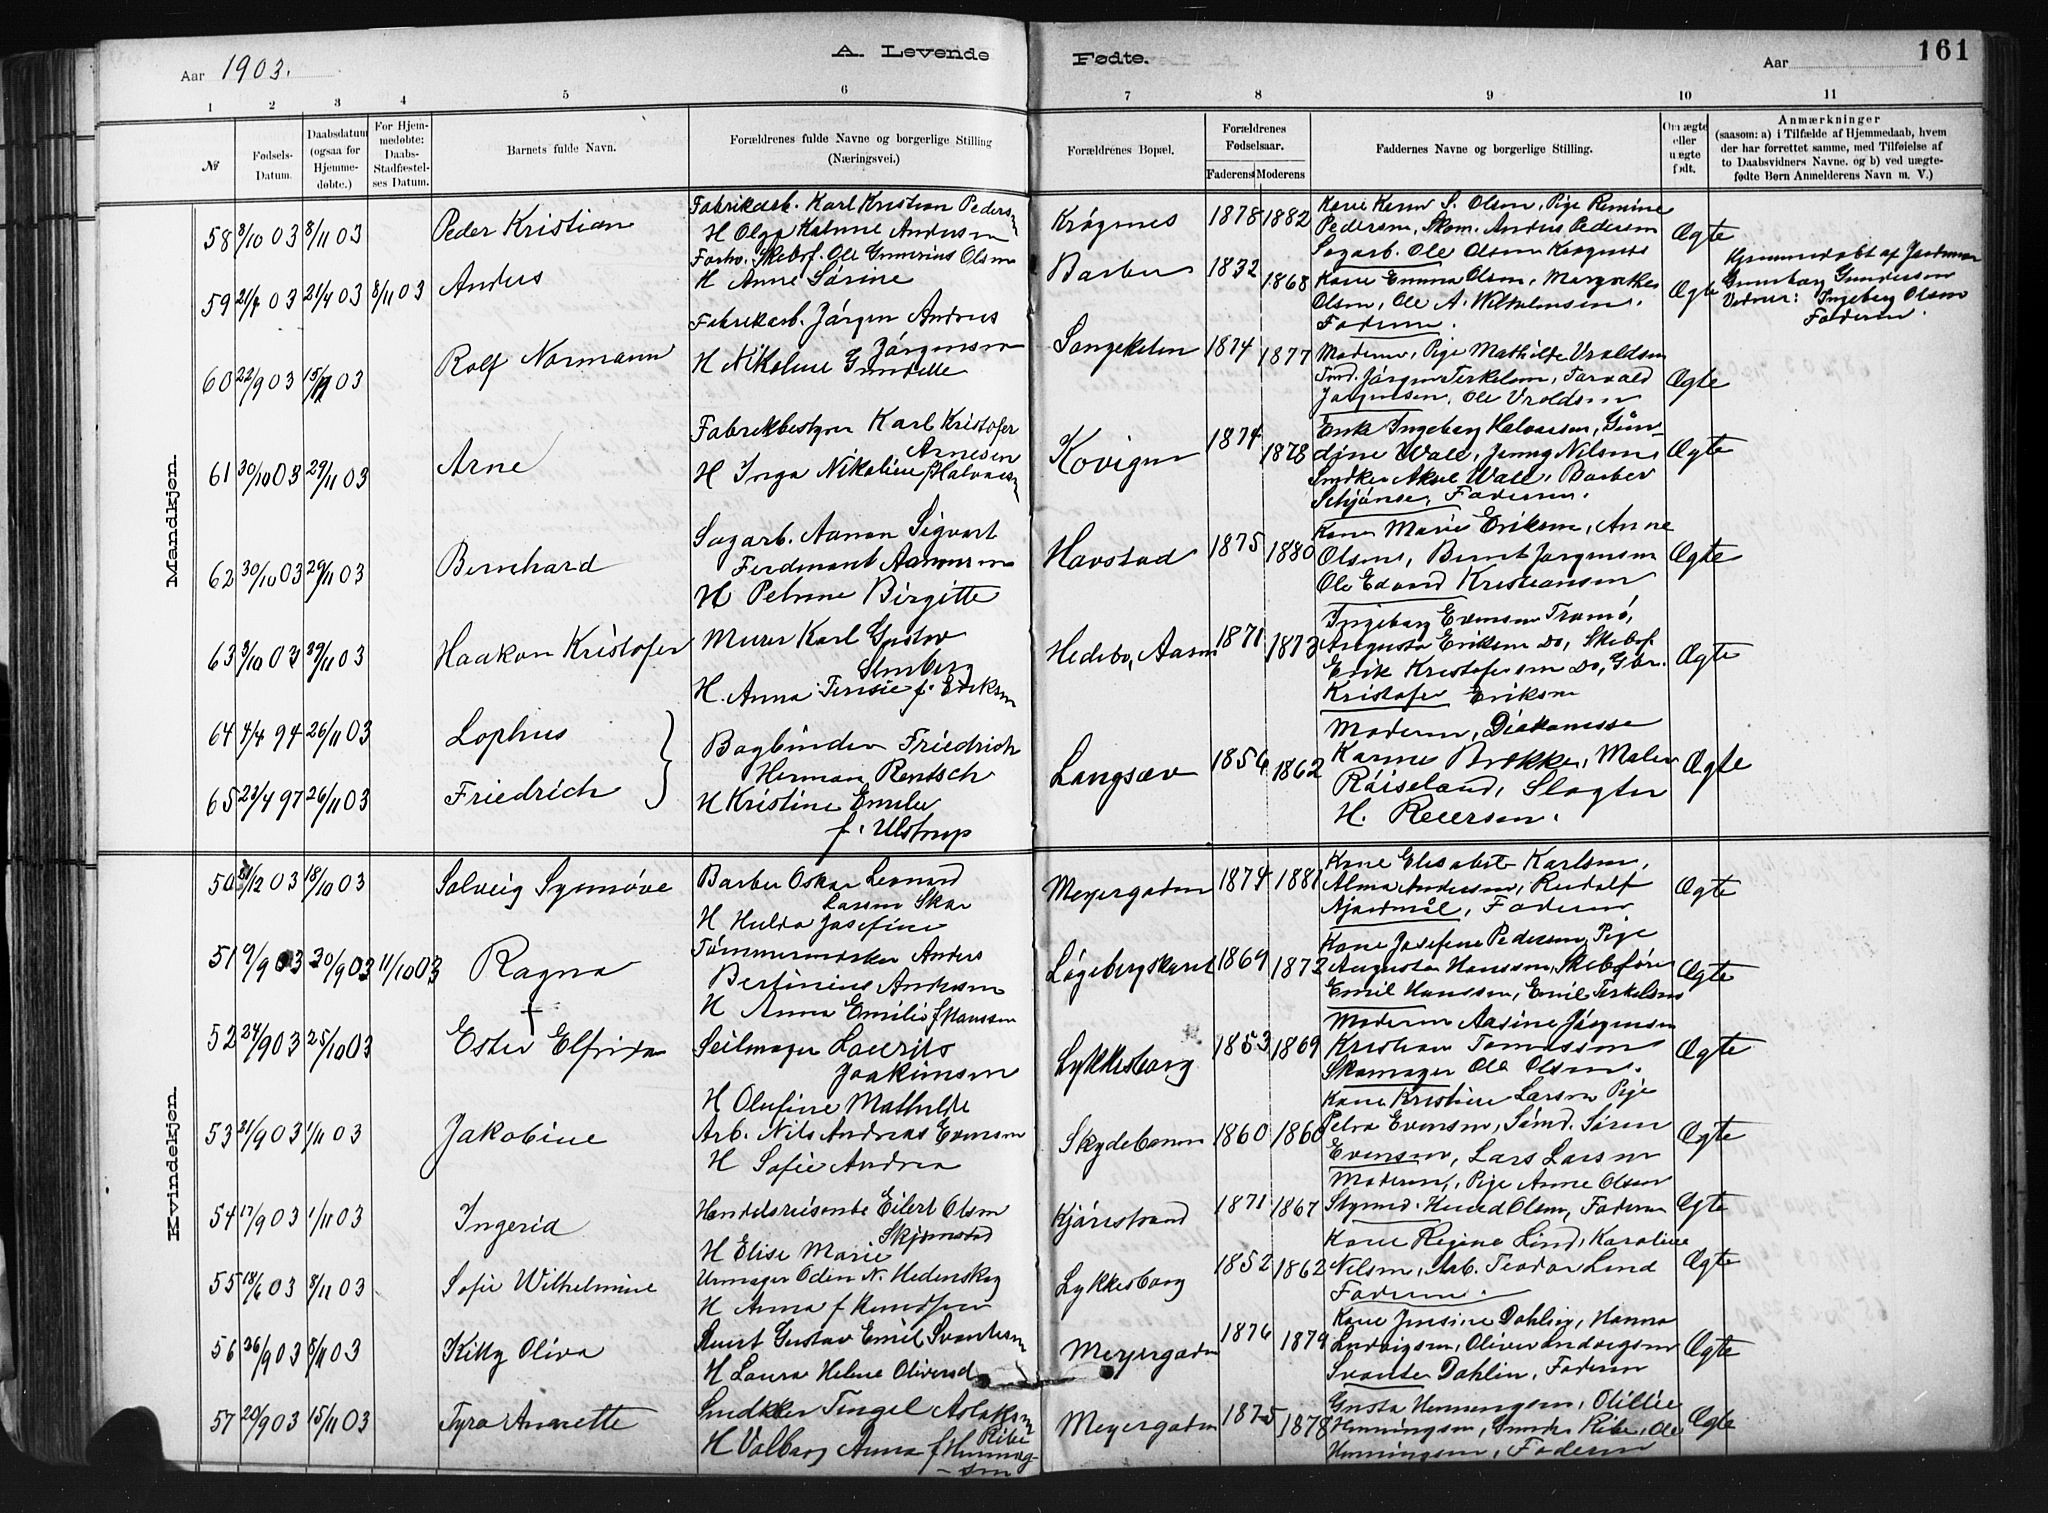 A. Levende Fødte.
161
Aar 1903.
Aar
1 2 3 4 5 6 7 8 9 10 11
№
Fødsels-Datum.
Daabsdatum (ogsaa for Hjemme-døbte.)
For Hjem-medøbte: Daabs-Stadfæstel-ses Datum.
Barnets fulde Navn.
Forældrenes fulde Navne og borgerlige Stilling (Næringsvei.)
Forældrenes Bopæl.
Forældrenes Fødselsaar.
Faderens Moderens
Faddernes Navne og borgerlige Stilling.
Om ægte eller uægte født.
Anmærkninger
(saasom: a) i Tilfælde af Hjemmedaab, hvem
der har forrettet samme, med Tilføielse af
to Daabsvidners Navne. og b) ved uægte-
fødte Børn Anmelderens Navn m. V.)
Mandkjøn.
58 8/10 03 8/11 03 Peder Kristian
Fabrikarb. Karl Kristian Pedersen
H Olga Andersen
Krøgenes 1878 1882
Kone Karen S. Olsen, Pige
Pedersen, Skom. Anders Pedersen
Sagarb. Ole Olsen Krøgenes
Ægte
59 21/4 03 8/11 03 Anders
Forhv. Skibsf. Ole Gunerius Olsen
H Anne Sørine
Barbu 1832 1868
Kone Emma Olsen,
Olsen, Ole A. Vilhelmsen.
Faderen.
Ægte
Hjemmedøbt af Jordmor
Gunderson
Vidner: Ingeberg Olsen
Faderen.
60 22/9 03 03 Rolf Normann
Fabrikarb. Jørgen Andreas
Jørgensen
H Nikoline
1874 1877
Moderen, Pige Mathilde Vraldsen
Jørgen Terkelsen, Torvald
Jørgensen, Ole Vroldsen
Ægte
61 30/10 03 29/11 03 Arne
Fabrikbestyrer Karl Kristofer
Arnesen
H Inga Nikoline f Halvorsen
Kovigen 1874 1878
Enke Ingeborg Halvorsen, Gun-
dine Wall, Jenny Nilsen,
Snedker Aksel Wall, Barber
Faderen.
Ægte
62 30/10 03 29/11 03 Bernhard
Sagarb. Aanon Sigvart
Ferdinant Aanonsen
H Petrine Birgitte
Havstad 1875 1880
Kone Marie Eriksen, Anne
Olsens, Bernt Jørgensen
Ole Edvard Kristiansen
Ægte
63 3/10 03 29/11 03 Haakon Kristofer
Murer Karl Gustav
Stenberg
H. Anna Teresie f. Eriksen
Hedebo, Aasen 1871 1873
Ingeborg Evensen Tromø,
Augusta Eriksen Do, Skibsf.
Erik Kristofersen Do,
Kristofer Eriksen
Ægte
64 4/4 94 26/11 03 Lophus
65 23/4 97 26/11 03 Friedrich
Bogbinder Friedrich
Herman Rentsch
H Kristine Emilie
f. Ulstrup
Langsæv 1856 1862
Moderen, Diakonisse
Karine Brokke, Maler
Røiseland, Slagter
H. Reiersen.
Ægte
Kvindekjøn.
50 03 18/10 03 Solveig Synnøve
Barber Oskar Leonard
Larsen Skar
H Hulda Josefine
Meyergaden 1874 1881
Kone Elisabet Karlsen,
Alma Andersen, Rudolf
Faderen
Ægte
51 9/9 03 30/9 03 11/10 03 Ragna
Tømmermærker Anders
Bertinius Andersen
H Anna Emilie f Hanssen
1869 1872
Kone Josefine Pedersen, Pige
Augusta Hanssen, Skibsfører
Emil Hanssen, Emil Terkelsen
Ægte
52 24/9 03 25/10 03 Ester Elfrida
Seilmager Laurits
Joakimsen
H Olufine Mathilde
Lykkesborg 1853 1869
Moderen Aasine Jørgensen
Kristian Tomassen
Skomager Ole Olsen.
Ægte
53 21/9 03 1/11 03 Jakobine
Arb. Nils Andreas Evensen
H Sofie Andrea
Skydebanen 1860 1860
Kone Kristine Larsen Pige
Petra Evensen, Sømd. Søren
Evensen, Lars Larsen
Ægte
54 17/9 03 1/11 03 Ingerid
Handelsreisende Eilert Olsen
H Elise Marie
1871 1867
Moderen, Pige Anne Olsen
Styrmd. Knud Olsen, Faderen
Ægte
55 18/6 03 8/11 03 Sofie Wilhelmine
Urmager Oden N. Hedenskog
H Anna f Knudsen
Lykkesborg 1852 1862
Kone Regine Lind, Karoline
Nilsen, Arb. Teodor Lind
Faderen.
Ægte
56 26/9 03 8/11 03 Kitty Oliva
Gustav Emil Svantesen
H Laura Helene
Meyergaden 1876 1879
Kone Jensine Dahlin, Hanna
Ludvigsen, Oliver Ludvigsen
Svante Dahlin, Faderen
Ægte
57 20/9 03 15/11 03 Tyra Annette
Snedker Tingel Aslaksen
Ribe
H Valborg Anna f Henning-
sen
Meyergaden 1875 1878
Gusta Henningsen, Otillie
Henningsen, Ribe, Ole
Henningsen, Faderen
Ægte